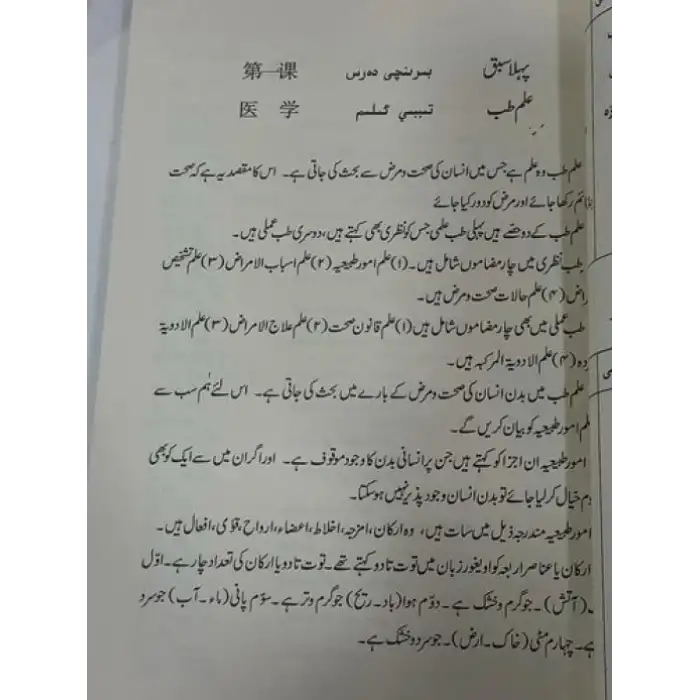 第一课 بىرىنچى دەرس پہلا سبق
医 学 تىببىي ئىلىم علم طب
علم طب وہ علم ہے جس میں انسان کی صحت و مرض سے بحث کی جاتی ہے۔ اس کا مقصد یہ ہے کہ صحت
قائم رکھا جائے اور مرض کو دور کیا جائے
علم طب کے دو حصے ہیں پہلی طب علمی جس کو نظری بھی کہتے ہیں، دوسری طب عملی ہیں۔
طب نظری میں چار مضاموں شامل ہیں۔ (۱) علم امور طبیعیہ (۲) علم اسباب الامراض (۳) علم تشخیص
راض (۴) علم حالات صحت و مرض ہیں۔
طب عملی میں بھی چار مضاموں شامل ہیں (۱) علم قانون صحت (۲) علم علاج الامراض (۳) علم الادویۃ
دہ (۴) علم الادویۃ المرکبہ ہیں۔
علم طب میں بدن انسان کی صحت و مرض کے بارے میں بحث کی جاتی ہے۔ اس لئے ہم سب سے
لم امور طبیعیہ کو بیان کریں گے۔
امور طبیعیہ ان اجزا کو کہتے ہیں جن پر انسانی بدن کا وجود موقوف ہے۔ اور اگر ان میں سے ایک کو بھی
دم خیال کر لیا جائے تو بدن انسان وجود پذیر نہیں ہو سکتا۔
امور طبیعیہ مندرجہ ذیل میں سات ہیں، وہ ارکان، امزجہ، اخلاط، اعضاء، ارواح، قوٰی، افعال ہیں۔
ارکان یا عناصر اربعہ کو اویغور زبان میں توت تادو کہتے تھے۔ توت تادو یا ارکان کی تعداد چار ہے۔ اوّل
۔ (آتش)۔ جو گرم و خشک ہے۔ دوّم ہوا (باد۔ ریح) جو گرم و تر ہے۔ سوّم پانی (ماء۔ آب) جو سرد
ہے۔ چہارم مٹی (خاک۔ ارض)۔ جو سرد و خشک ہے۔